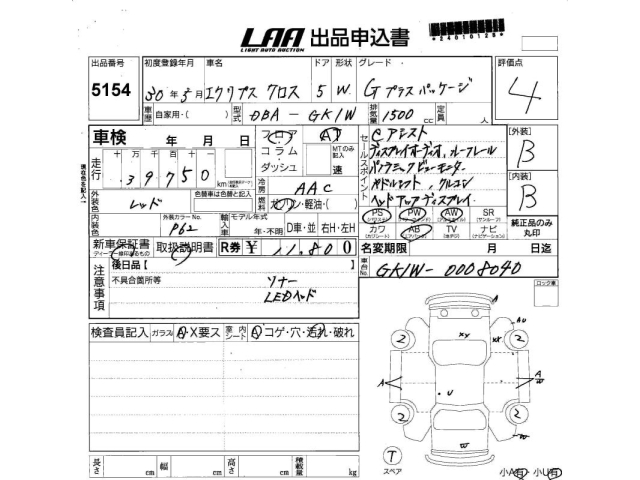 LAA 出品申込書
LIGHT AUTO AUCTION
*24010128*
出品番号 初度登録年月 車名 ドア 形状 グレード 評価点
5154 30年5月 エクリプス クロス 5 W Gプラス パッケージ 4
車歴 自家用・( ) 型式 DBA-GK1W 排気量 1500 cc 定員 人
車検 年 月 日
フロア コラム ダッシュ
AT MTのみ記入 速
セールスポイント
Cアシスト
ディスプレイオーディオ、ルーフレール
パノラミックビューモニター
パドルシフト、クルコン
ヘッドアップディスプレイ
[外装] B
[内装] B
走行 十 万 千 百 十
39750 km
冷房 AAC
燃料 ガソリン・軽油・( )
外装色 レッド 色替車は色替と記入
内装色 外装カラーNo. P62
輸入車 モデル年式 年・不明 D車・並 右H・左H
PS PW AW SR (サンルーフ)
カワ AB TV ナビ (ナビゲーション)
純正品のみ丸印
新車保証書 取扱説明書 R券 ¥ 11,800
名変期限 月 日迄
車台No. GK1W-0008040
注意事項 後日品【 】
不具合箇所等
ソナー
LEDヘッド
ロック車
検査員記入 ガラス A・X要ス 室内シート コゲ・穴・汚れ・破れ
A
AU
XY
XX
2 2
A
A
W
U
2 2
W
W
T
スペア
長さ cm 幅 cm 高さ cm 積載量 kg
小A有 小U有